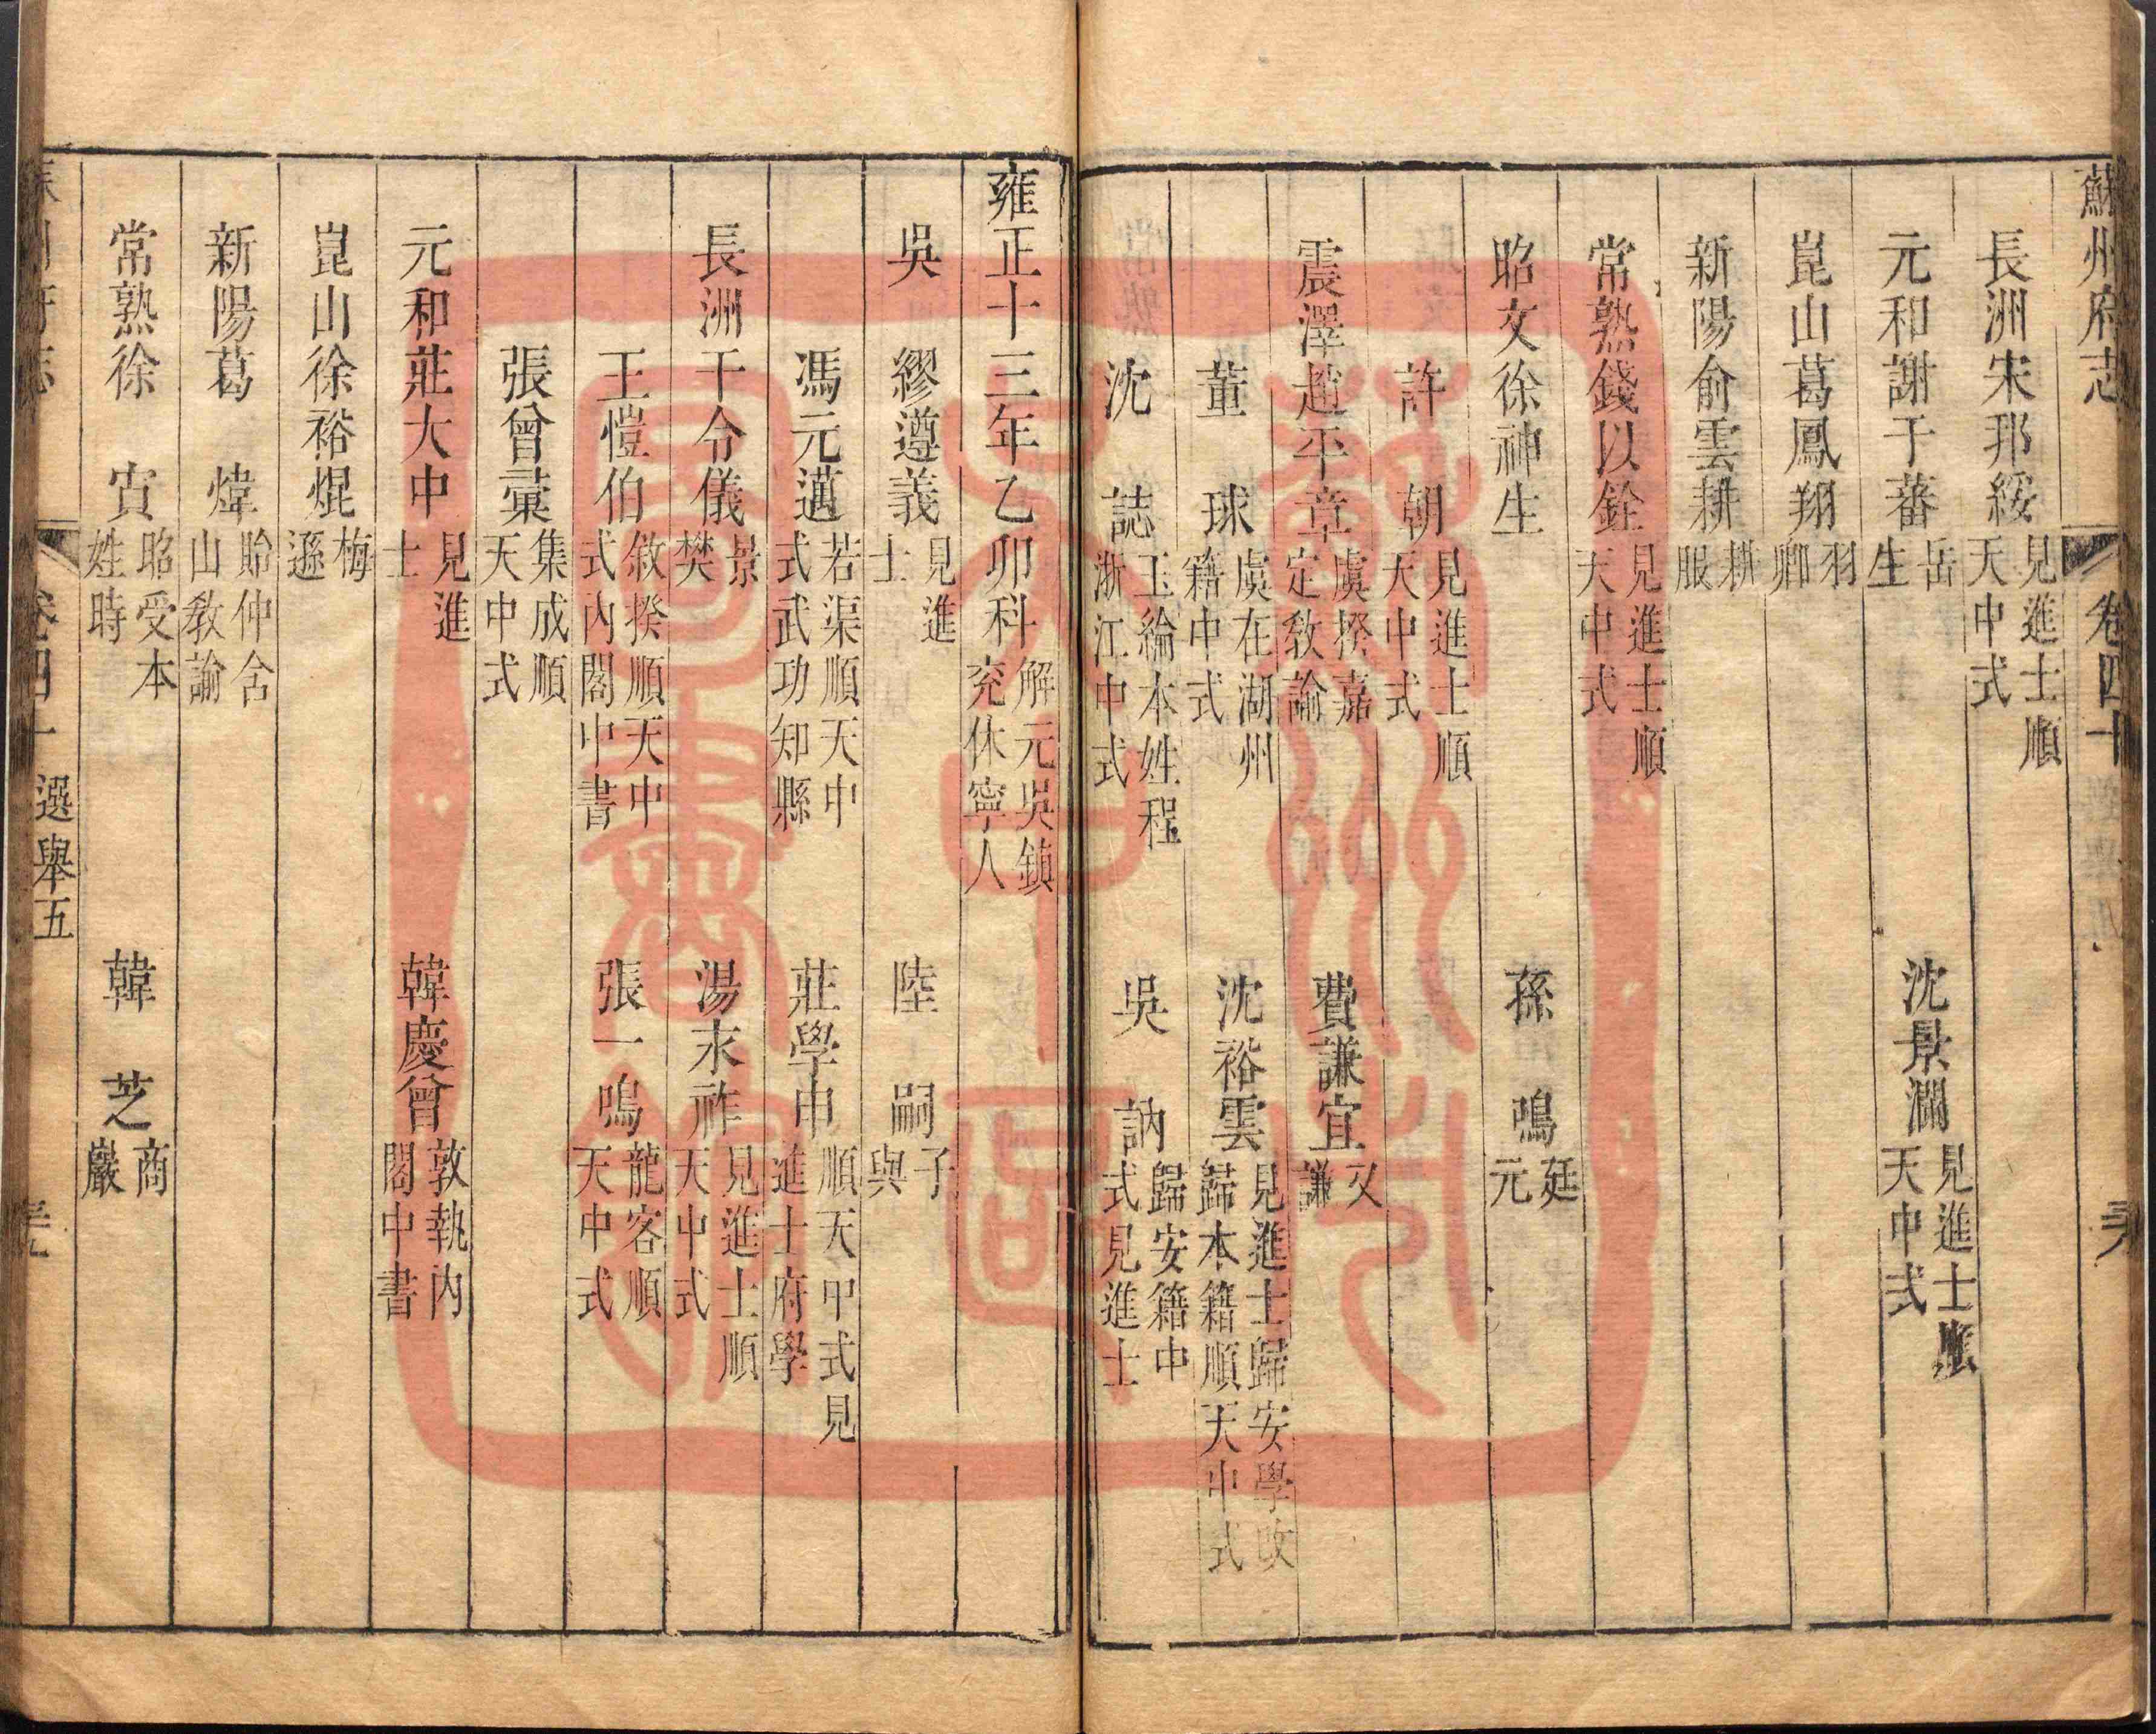 蘇州府志 卷四十
長洲宋邦綏見進士順天中式
元和謝于蕃岳生 沈景瀾見進士順天中式
崑山葛鳳翔羽卿
新陽俞雲耕耕服
常熟錢以銓見進士順天中式
昭文徐神生 孫鳴廷元
許朝見進士順天中式
震澤趙平章虞揆嘉定教諭 費謙宜又謙
董球虞在湖州籍中式 沈裕雲見進士歸安學改歸本籍順天中式
沈誌玉綸本姓程浙江中式 吳訥歸安籍中式見進士
雍正十三年乙卯科解元吳鎮兖休寧人
吳繆遵義見進士 陸嗣子與
馮元邁若渠順天中式武功知縣 莊學申順天甲式見進士府學
長洲干令儀景樊 湯永祚見進士順天中式
王愷伯敘揆順天中式內閣中書 張一鳴龍客順天中式
張曾彙集成順天中式
元和莊大中見進士 韓慶曾敦執內閣中書
崑山徐裕焜梅遜
新陽葛煒貽仲含山教諭
常熟徐寅昭受本姓時 韓芝商巖
卷四十 選舉五